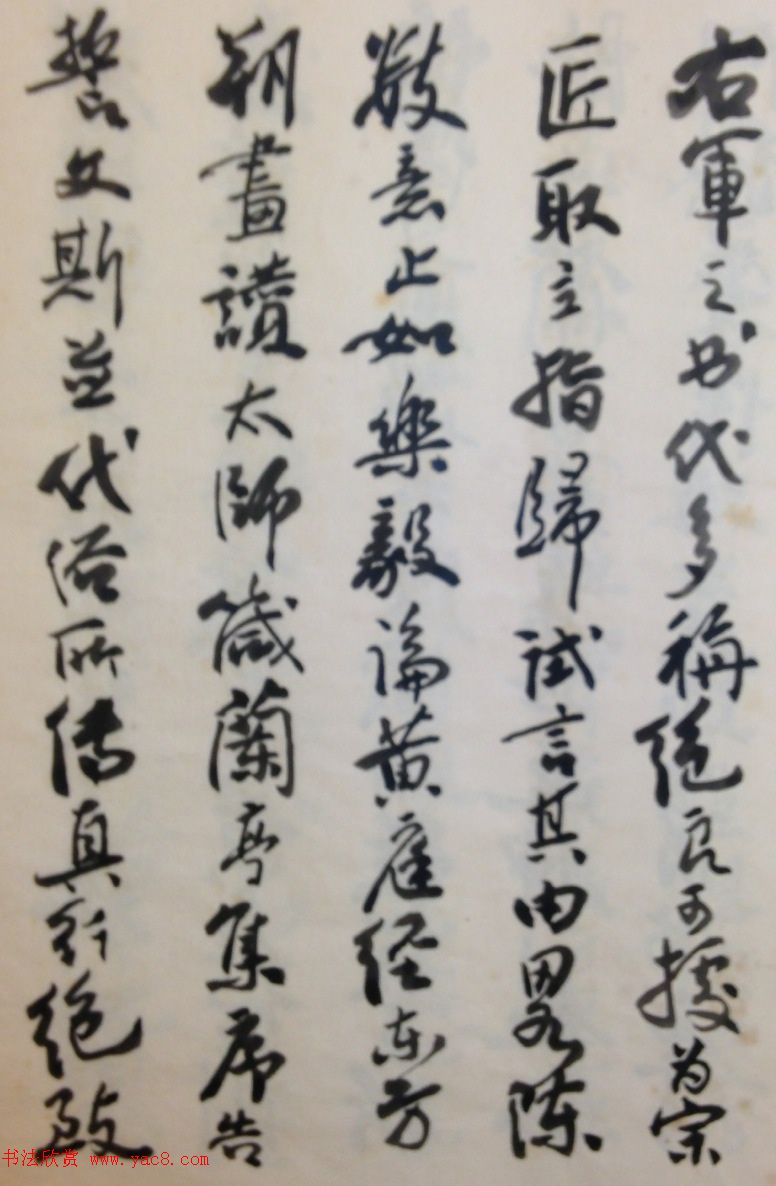 右軍之书代多稱絕良可據为宗
匠取立指歸試言其由畧陈
數意止如樂毅論黄庭经东方
朔畫讃太師箴蘭亭集序告
誓文斯並代俗所傳真行絕致
书法欣赏 www.yac8.com